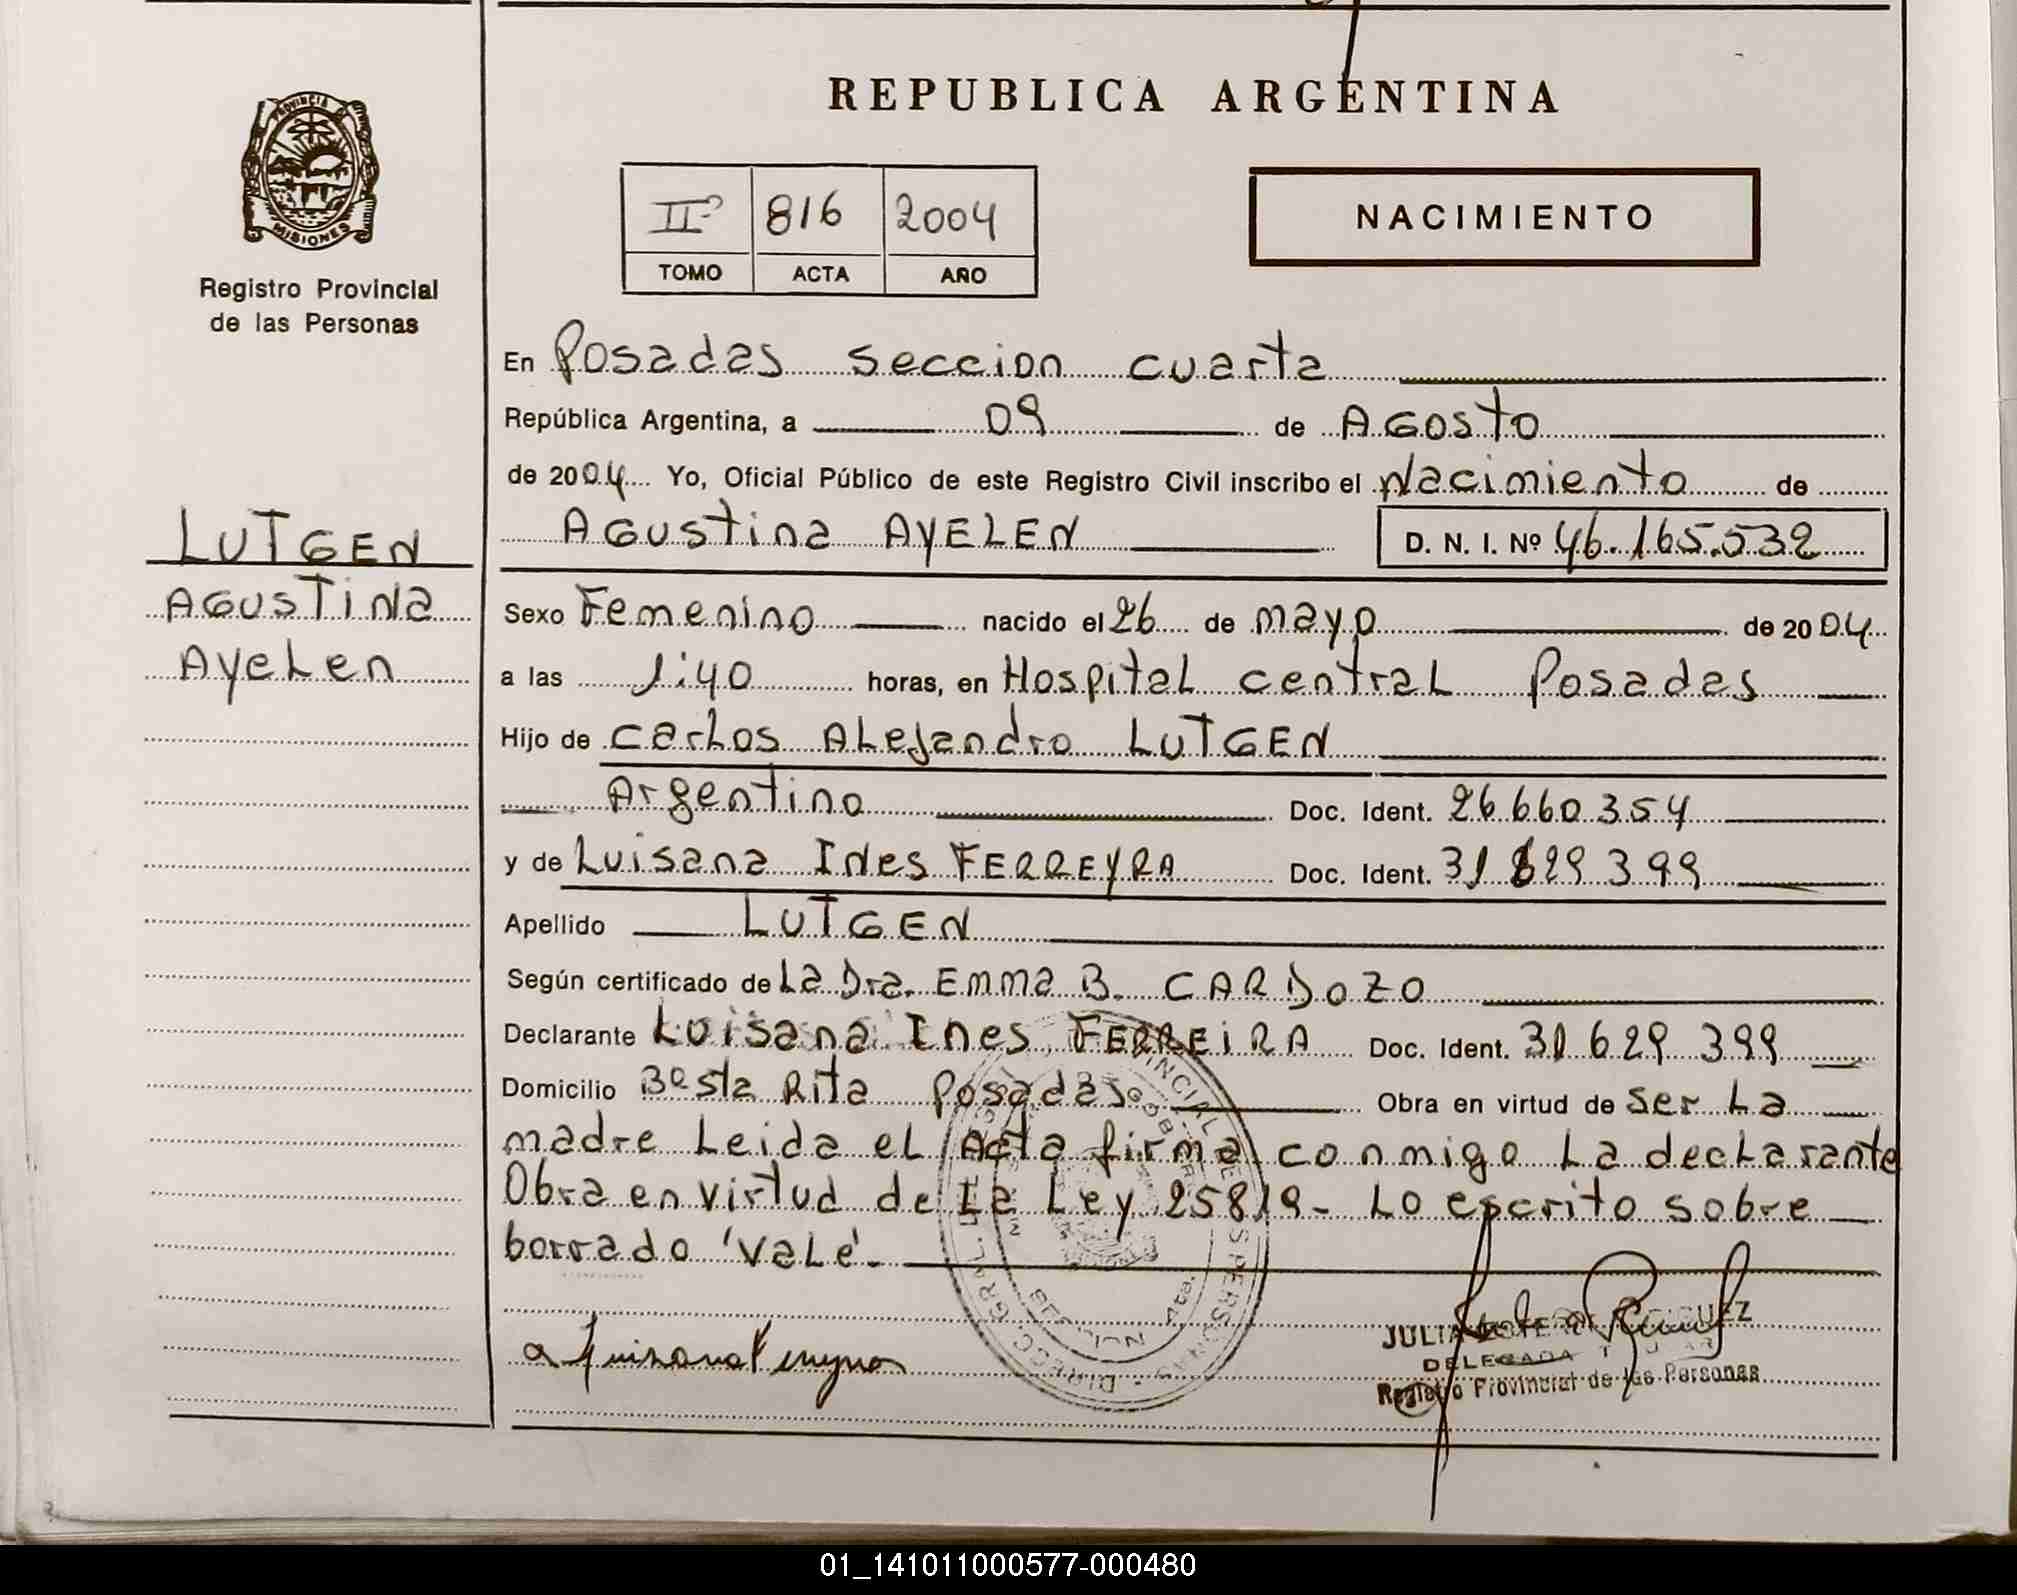 REPUBLICA ARGENTINA
PROVINCIA DE MISIONES
Registro Provincial
de las Personas
IIº 816 2004
TOMO ACTA AÑO
NACIMIENTO
En Posadas seccion cuarta
República Argentina, a 09 de AGosto
de 2004 Yo, Oficial Público de este Registro Civil inscribo el Nacimiento de
AGustina AYELEN D. N. I. Nº 46.165.532
LUTGEN
AGUSTINA
AyeLen
Sexo Femenino nacido el 26 de mayo de 2004
a las 1:40 horas, en HospitaL centraL Posadas
Hijo de carLos ALejandro LUTGEN
Argentino Doc. Ident. 26 660 354
y de Luisana Ines FERREYRA Doc. Ident. 31 629 399
Apellido LUTGEN
Según certificado de La Dra. Emma B. CARDOZO
Declarante Luisana Ines FERREiRA Doc. Ident. 31 629 399
Domicilio Bº Sta Rita Posadas Obra en virtud de ser La
madre Leida eL Acta firma conmigo La decLarante
Obra en virtud de La Ley 25819- Lo escrito sobre
borrado 'vaLe'-
DELEGADA
Registro Provincial de las Personas
01_141011000577-000480